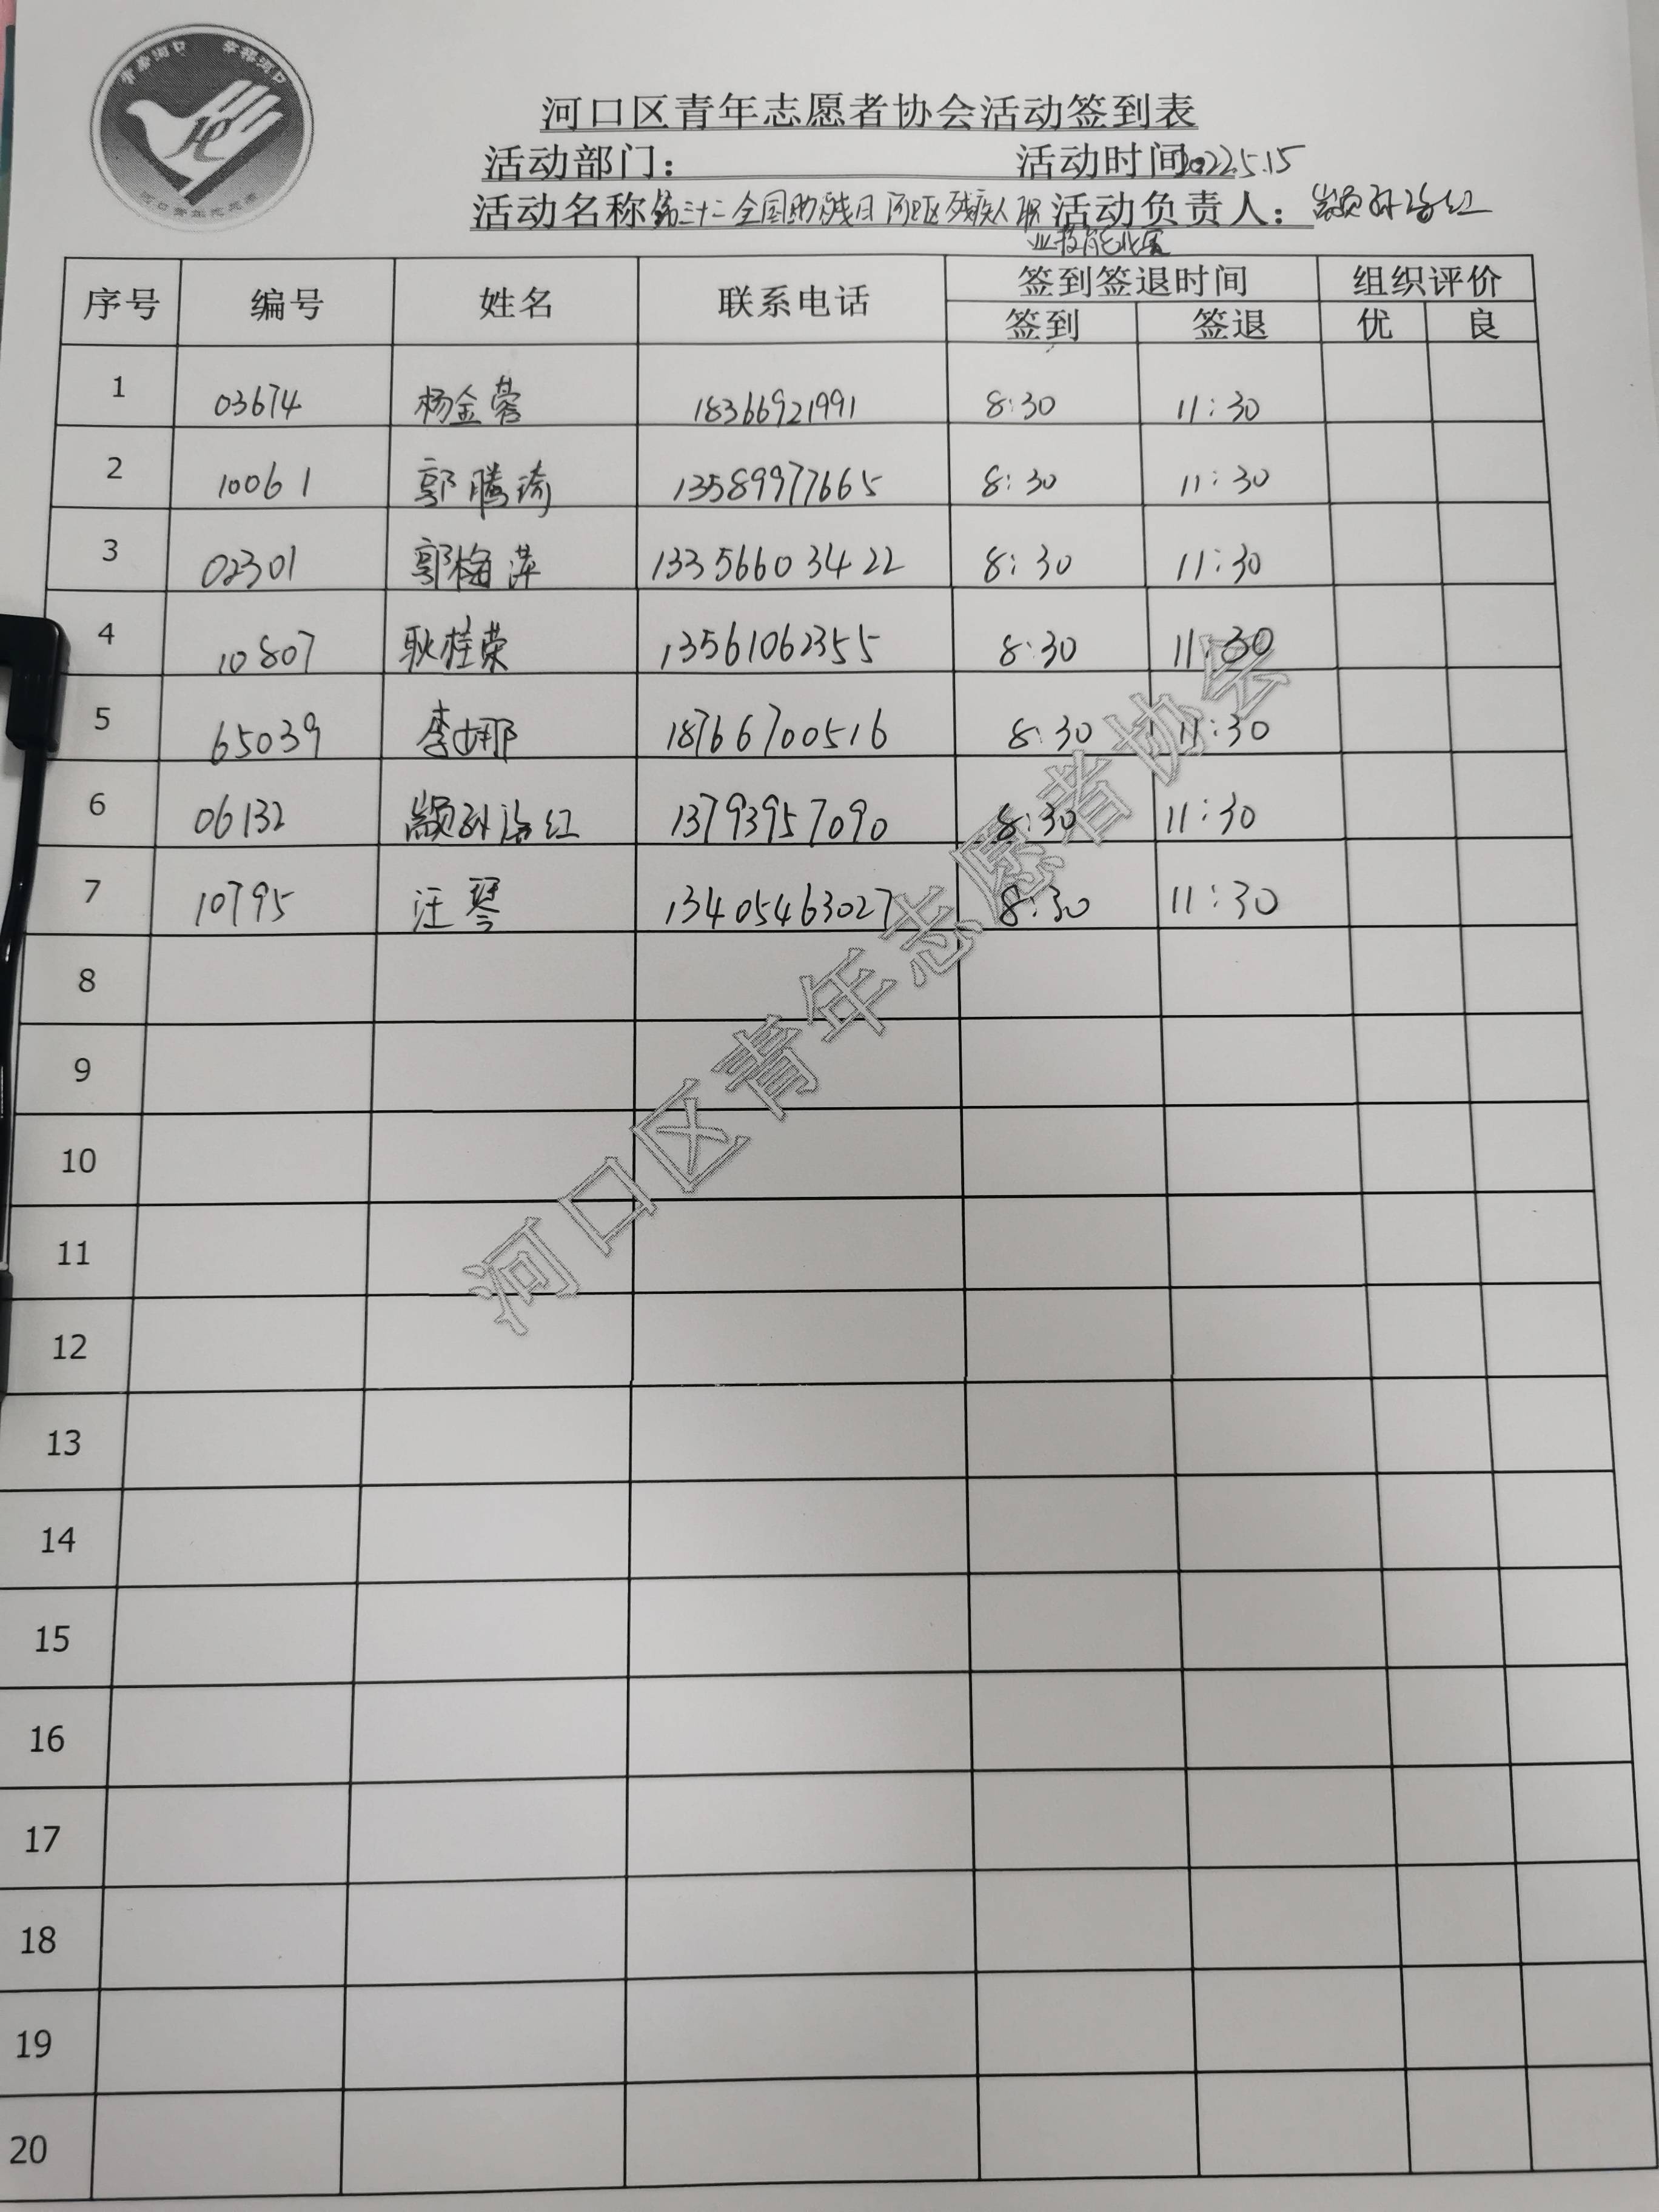 青春河口 幸福河口
河口区青年志愿者协会活动签到表
活动部门： 活动时间2022.5.15
活动名称 第三十二全国助残日河口区残疾人职 活动负责人：颛孙海红
业技能
序号 编号 姓名 联系电话 签到签退时间 组织评价
签到 签退 优 良
1 03674 杨金蓉 18366921991 8:30 11:30
2 10061 郭腾琦 13589977665 8:30 11:30
3 02301 郭梅萍 13356603422 8:30 11:30
4 10807 耿桂荣 13561062355 8:30 11:30
5 65039 李娜 18766700516 8:30 11:30
6 06132 颛孙海红 13793957090 8:30 11:30
7 10795 汪琴 13405463027 8:30 11:30
8
9
10
11
12
13
14
15
16
17
18
19
20
河口区青年志愿者协会